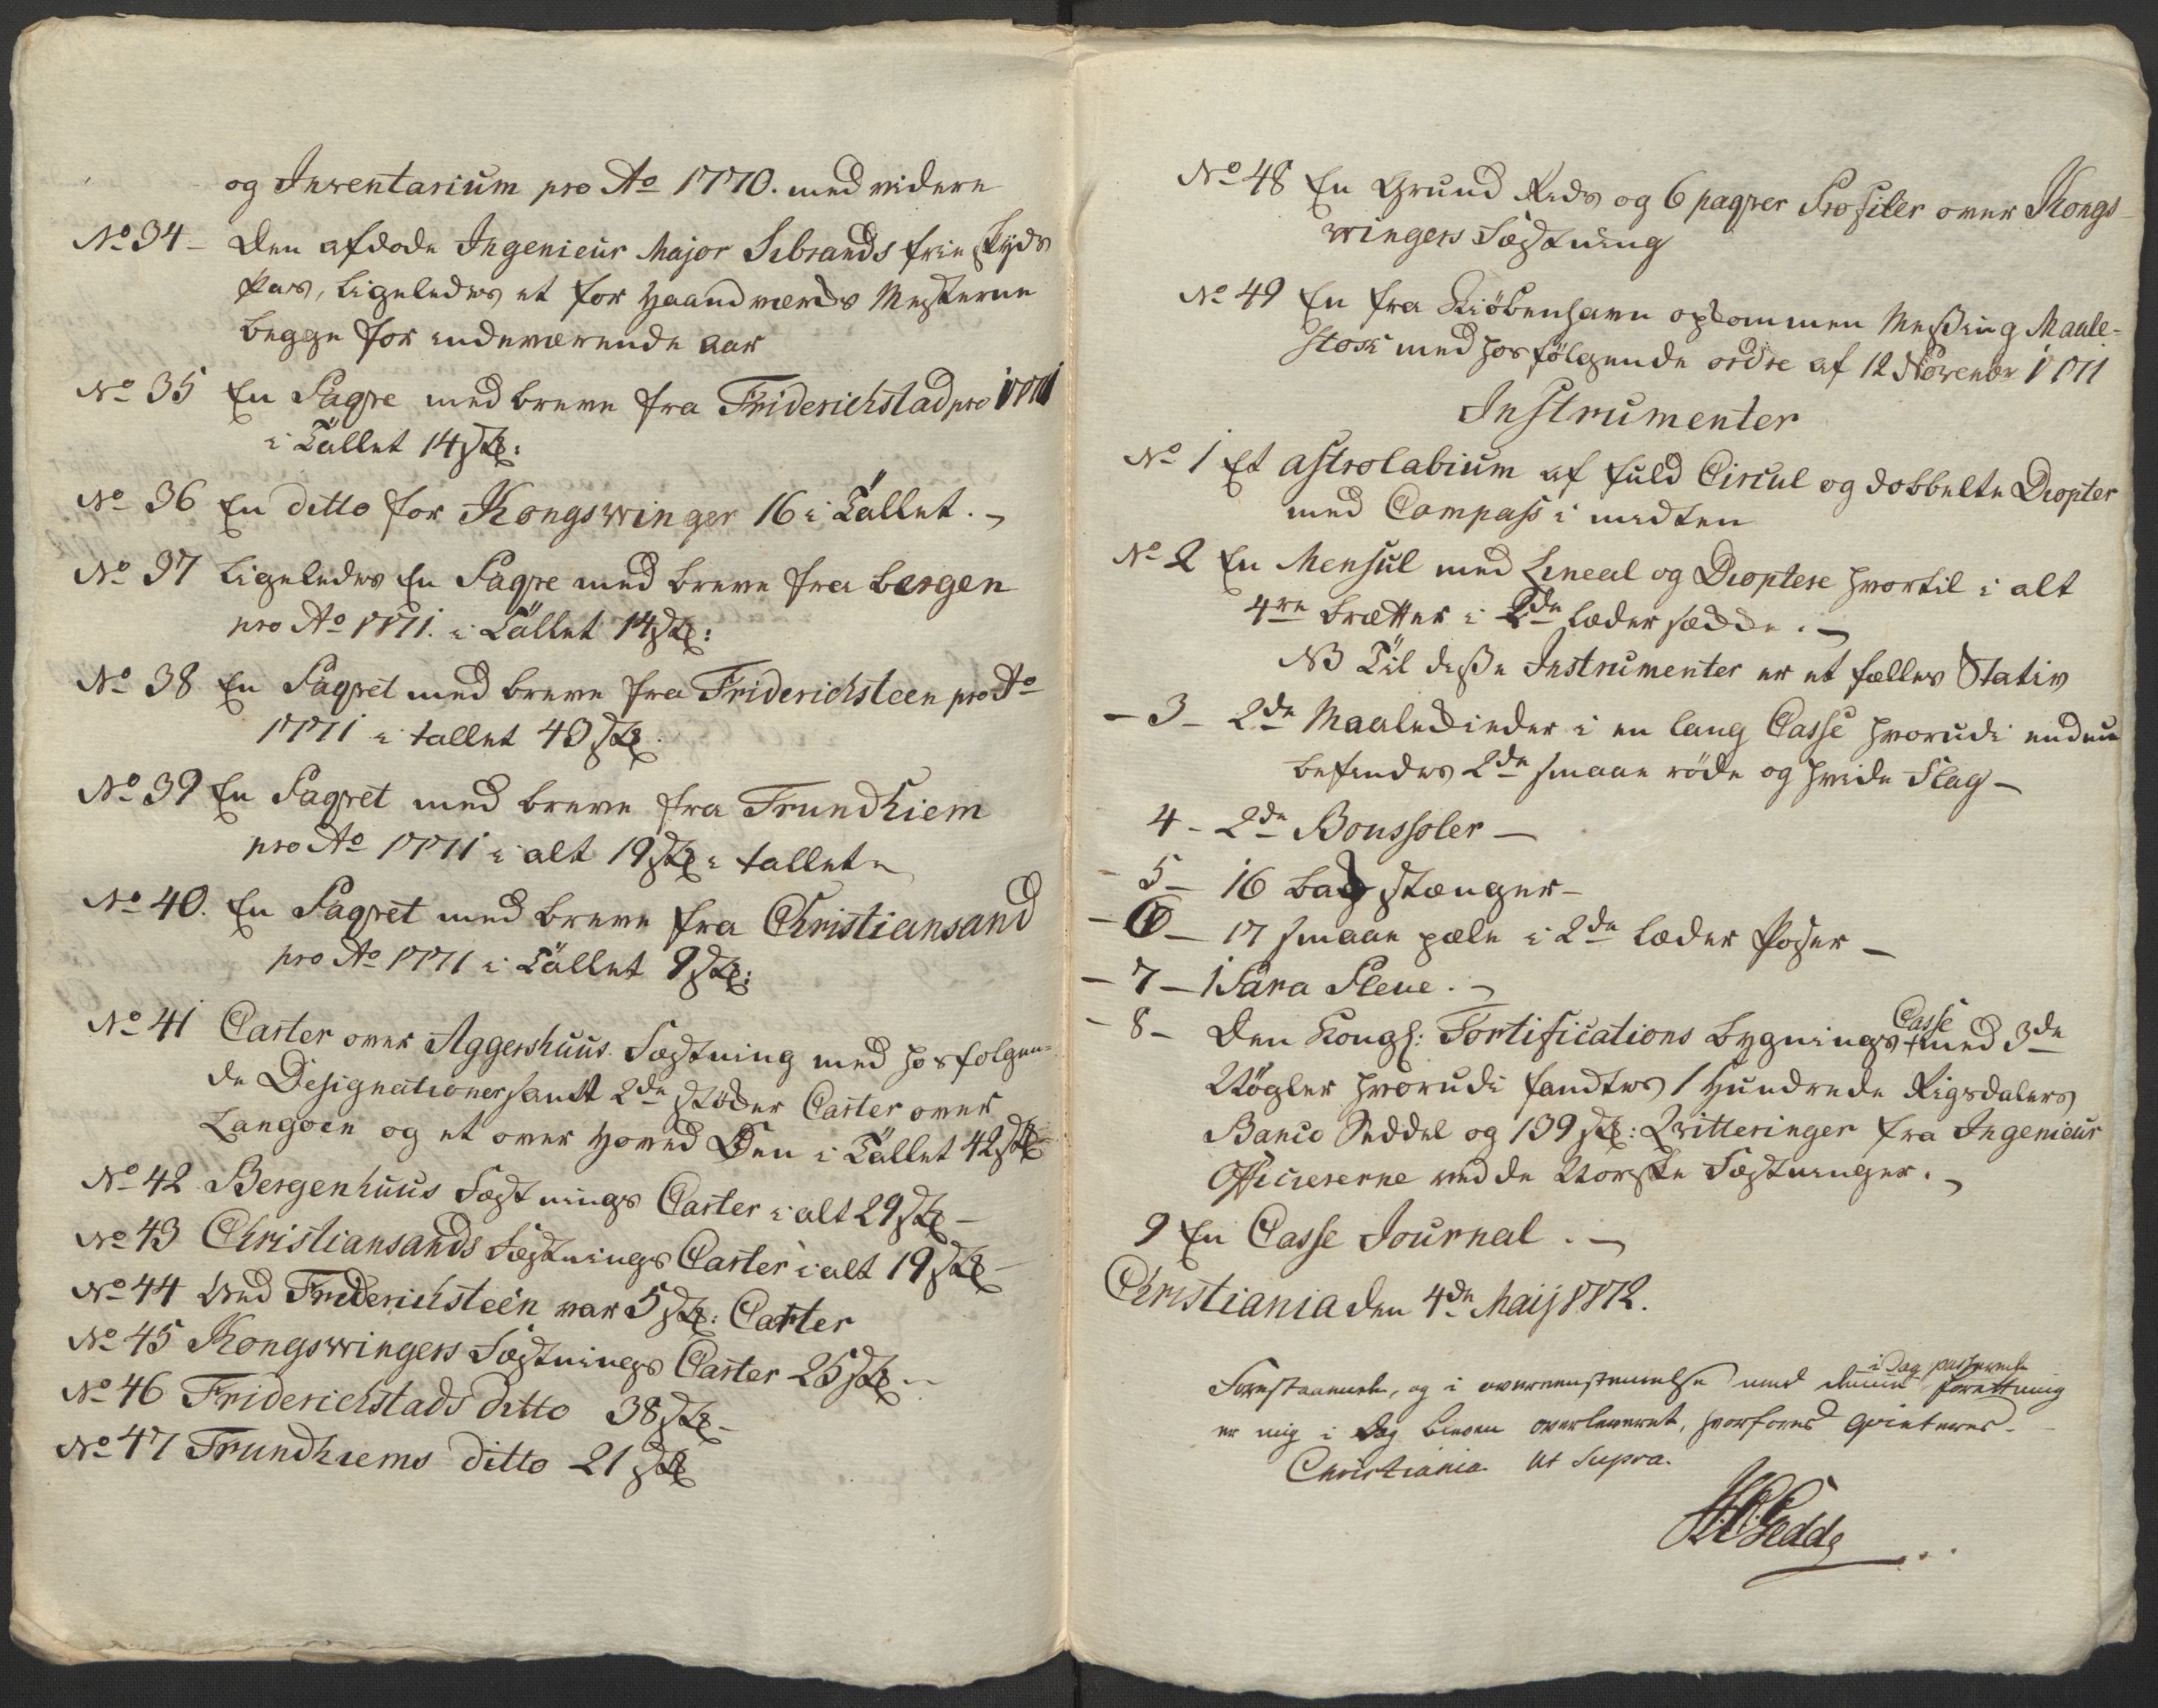 og Inventarium pro Ao 1770. med videre
No 34 - Den afdøde Ingenieur Major Sibrands frie Skyds
Pas, ligeledes et for Haandværks Mesterne
begge for indeværende Aar
No 35 En Paqve med breve fra Friderichstad pro 1771
i Tallet 14 stk:
No 36 En ditto for Kongswinger 16 i Tallet. -
No 37 Ligeledes En Paqve med breve fra bergen
pro Ao 1771. i Tallet 14 stk:
No 38 En Paqvet med breve fra Friderichsteen pro Ao
1771 i tallet 43 stk.
No 39 En Paqvet med breve fra Trundhiem
pro Ao 1771 i alt 19 stk i tallet
No 40. En Paqvet med breve fra Christiansand
pro Ao 1771 i Tallet 9 stk:
No 41 Carter over Aggershuus Fæstning med hosfølgen-
de Designationer samt 2de støder Carter over
Langøen og et over Hoved Øen i Tallet 42 stk
No 42 Bergenhuus Fæstnings Carter i alt 29 stk -
No 43 Christiansands Fæstnings Carter i alt 19 stk -
No 44 Ved Friderichsteen var 5 stk: Carter
No 45 Kongswingers Fæstnings Carter 25 stk -
No 46 Friderichstads ditto 38 stk -
No 47 Trundhiems ditto 21 stk
No 48 En Grund Rids og 6 paqver Profiler over Kongs-
wingers Fæstning
No 49 En fra Kiöbenhavn opkommen Messing Maale-
stok med hosfølgende ordre af 12 Novembr 1771
Instrumenter
No 1 Et astrolabium af fuld Circul og dobbelte Diopter
med Compass i midten
No 2 En Mensul med Lineal og Dioptere hvortil i alt
4re brætter i 2de læder sædde. -
NB Til disse Instrumenter er et fælles Stativ
- 3 - 2de Maalekieder i en lang Casse hvorudi endnu
befindes 2de smaae røde og hvide Flag -
4 - 2de Boussoler -
- 5 - 16 bag stænger -
- 6 - 17 smaae pæle i 2de læder Poser -
- 7 - 1 Para Pleue. -
- 8 - Den Kongl: Fortifications bygnings Casse med 3de
Nøgler hvorudi fandtes 1 Hundrede Rigsdalers
Banco Seddel og 139 stk: Qvitteringer fra Ingenieur
Officiererne ved de Norske Fæstninger. -
9 En Casse Journal. -
Christiania den 4de Maij 1772.
Forestaaende, og i overeenstemmelse med denne i Dag passerede forretning
er mig i Dag bleven overleveret, hvorfores qviteres -
Christiania ut Supra.
Gedde